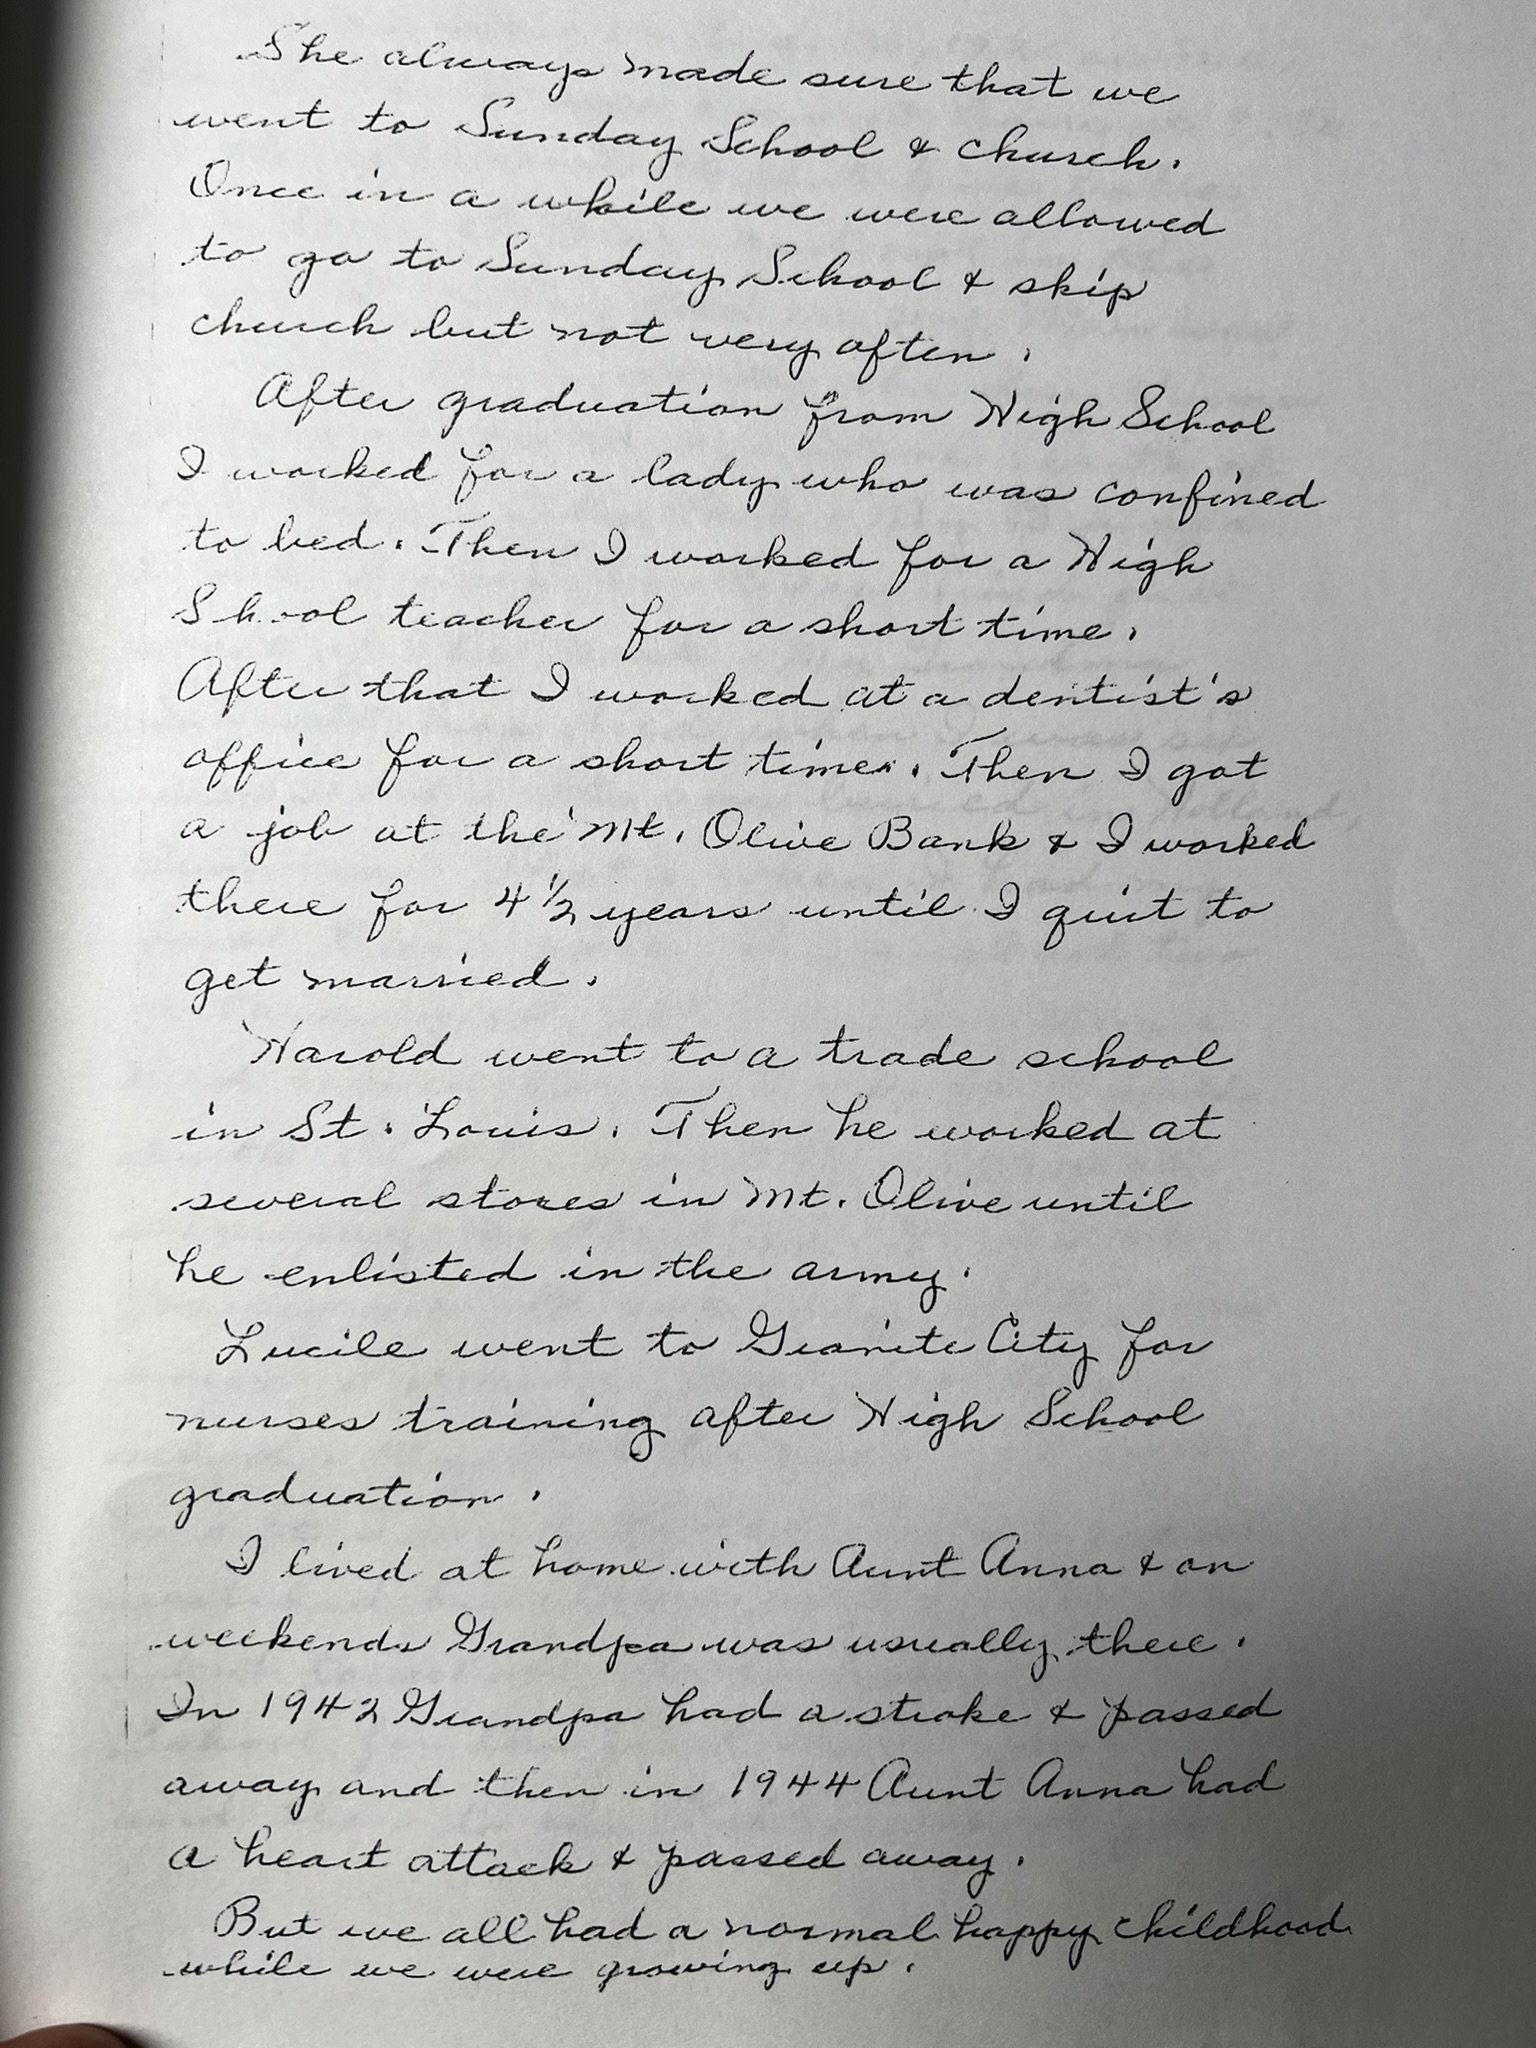 She always made sure that we
went to Sunday School & church.
Once in a while we were allowed
to go to Sunday School & skip
church but not very often.
After graduation from High School
I worked for a lady who was confined
to bed. Then I worked for a High
School teacher for a short time.
After that I worked at a dentist's
office for a short time. Then I got
a job at the Mt. Olive Bank & I worked
there for 4 1/2 years until I quit to
get married.
Harold went to a trade school
in St. Louis. Then he worked at
several stores in Mt. Olive until
he enlisted in the army.
Lucile went to Granite City for
nurses training after High School
graduation.
I lived at home with Aunt Anna & on
weekends Grandpa was usually there.
In 1942 Grandpa had a stroke & passed
away and then in 1944 Aunt Anna had
a heart attack & passed away.
But we all had a normal happy childhood
while we were growing up.